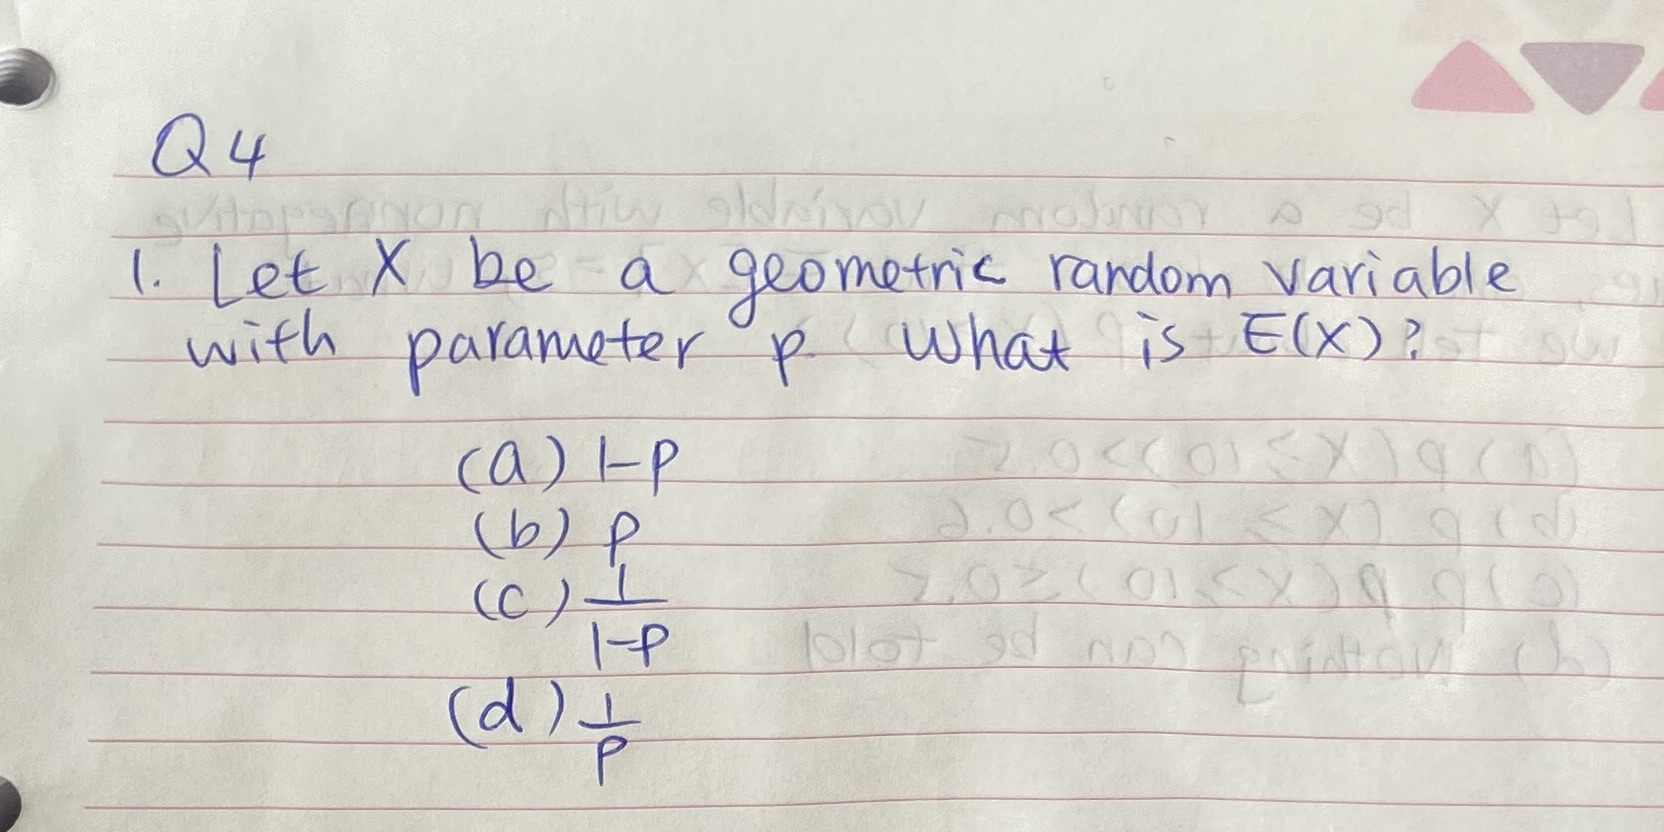 Q4
1. Let X be a geometric random variable
with parameter p. What is E(X)?
(a) 1-p
(b) p
(c) 1/1-p
(d) 1/p